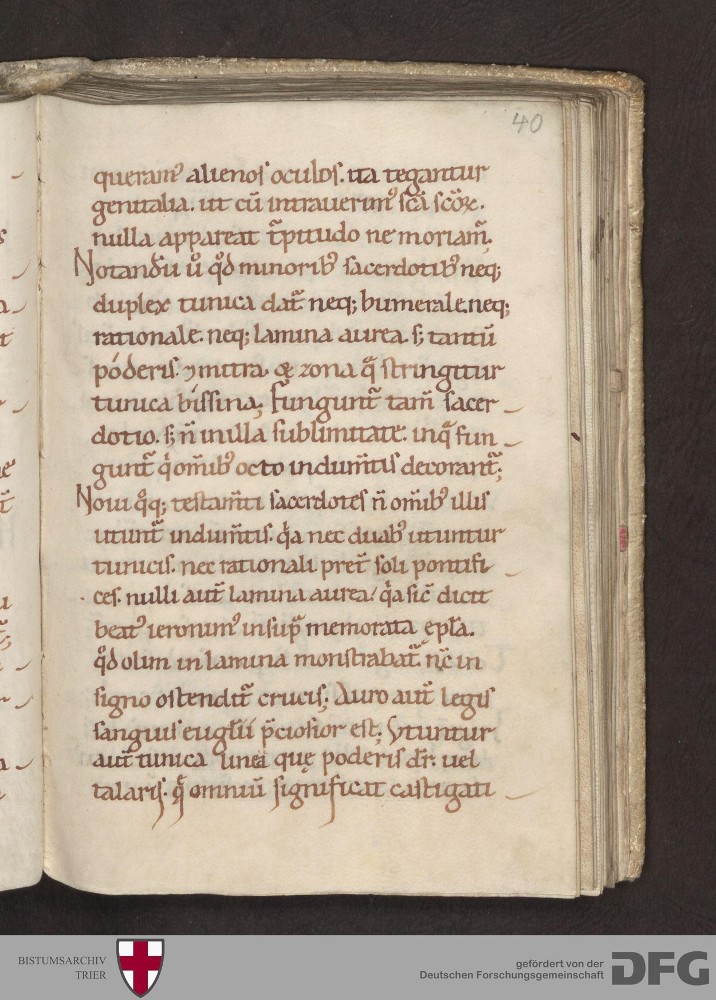 40
queram᾽ alienos oculos. ita tegantur
genitalia. ut cū intrauerim᾽ sc̄a sc̄oꝝ.
nulla appareat t̄pitudo ne moriam̄.
Notandū u᾽ qd̄ minorib᾽ sacerdotib᾽ neq;
duplex tunica dat᷑. neq; humerale. neq;
rationale. neq; lamina aurea. s; tantū
póderis. ⁊ mitra. & zona q̄ stringitur
tunica bissina; Fungunt᷑ tam̄ sacer
dotio. s; n̄ in illa sublimitate. in q̄ fun
gunt᷑ qi om̄ib᾽ octo indum̄tis decorant᷑;
Noui qoq; testam̄ti sacerdotes n̄ om̄ib᾽ illis
utunt᷑ indum̄tis. qa nec duab᾽ utuntur
tunicis. nec rationali pret̄ soli pontifi
ces. nulli aut̄ lamina aurea / qa sic̄ dicit
beat᾽ ieronim᾽ in sup̄ memorata ep̄la.
qd̄ olim in lamina monstrabat᷑. nc̄ in
signo ostendit᷑ crucis; Auro aut̄ legis
sanguis eugl̄ii p̄ciosior est; Vtuntur
aut̄ tunica linea quę poderis dr̄: uel
talaris. q̄ omniū significat castigati
BISTUMSARCHIV
TRIER
gefördert von der
Deutschen Forschungsgemeinschaft
DFG